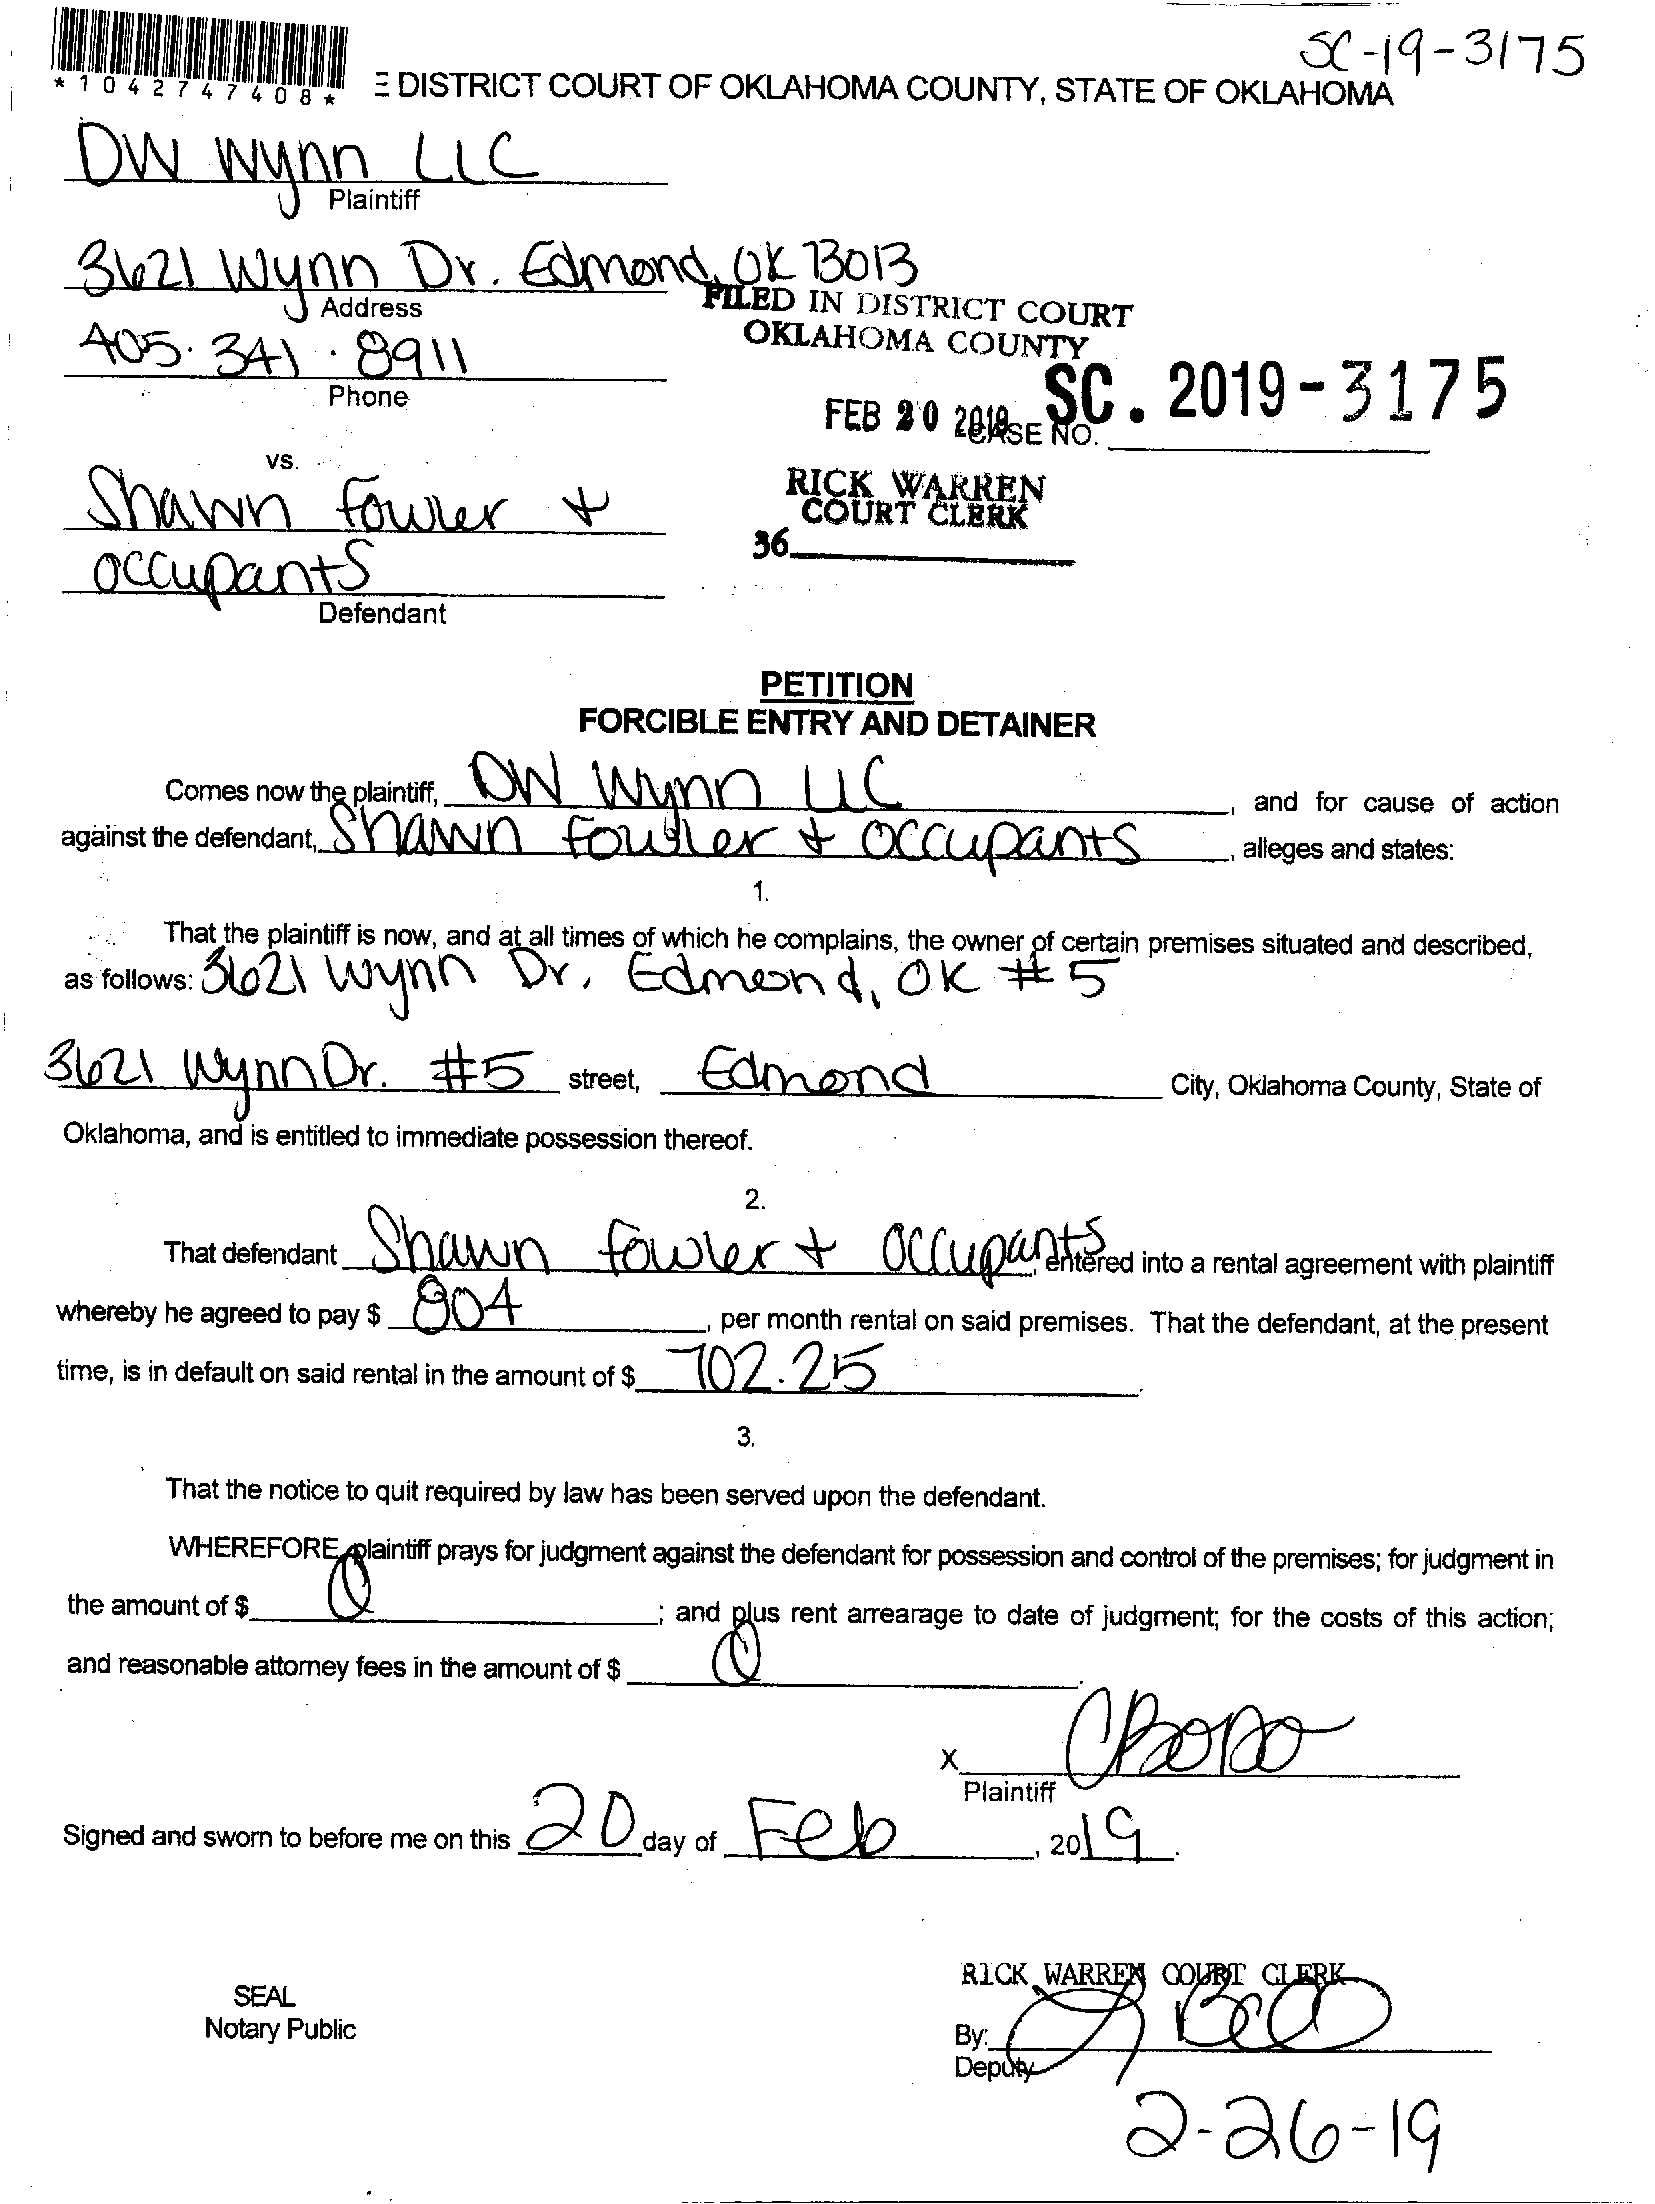 SC-19-3175
*1042747408*
DISTRICT COURT OF OKLAHOMA COUNTY, STATE OF OKLAHOMA
DW Wynn LLC
Plaintiff
3621 Wynn Dr. Edmond, OK 73013
Address
FILED IN DISTRICT COURT
OKLAHOMA COUNTY
405.341.8911
Phone
FEB 20 2019
CASE NO. SC. 2019-3175
vs.
RICK WARREN
COURT CLERK
36
Shawn Fowler +
occupants
Defendant
PETITION
FORCIBLE ENTRY AND DETAINER
Comes now the plaintiff, DW Wynn LLC, and for cause of action
against the defendant, Shawn Fowler + occupants, alleges and states:
1.
That the plaintiff is now, and at all times of which he complains, the owner of certain premises situated and described,
as follows: 3621 Wynn Dr, Edmond, OK #5
3621 Wynn Dr. #5 street, Edmond City, Oklahoma County, State of
Oklahoma, and is entitled to immediate possession thereof.
2.
That defendant Shawn Fowler + occupants, entered into a rental agreement with plaintiff
whereby he agreed to pay $ 804, per month rental on said premises. That the defendant, at the present
time, is in default on said rental in the amount of $ 702.25.
3.
That the notice to quit required by law has been served upon the defendant.
WHEREFORE, plaintiff prays for judgment against the defendant for possession and control of the premises; for judgment in
the amount of $ 0; and plus rent arrearage to date of judgment; for the costs of this action;
and reasonable attorney fees in the amount of $ 0.
X
Plaintiff
Signed and sworn to before me on this 20 day of Feb, 2019.
SEAL
Notary Public
RICK WARREN COURT CLERK
By:
Deputy
2-26-19